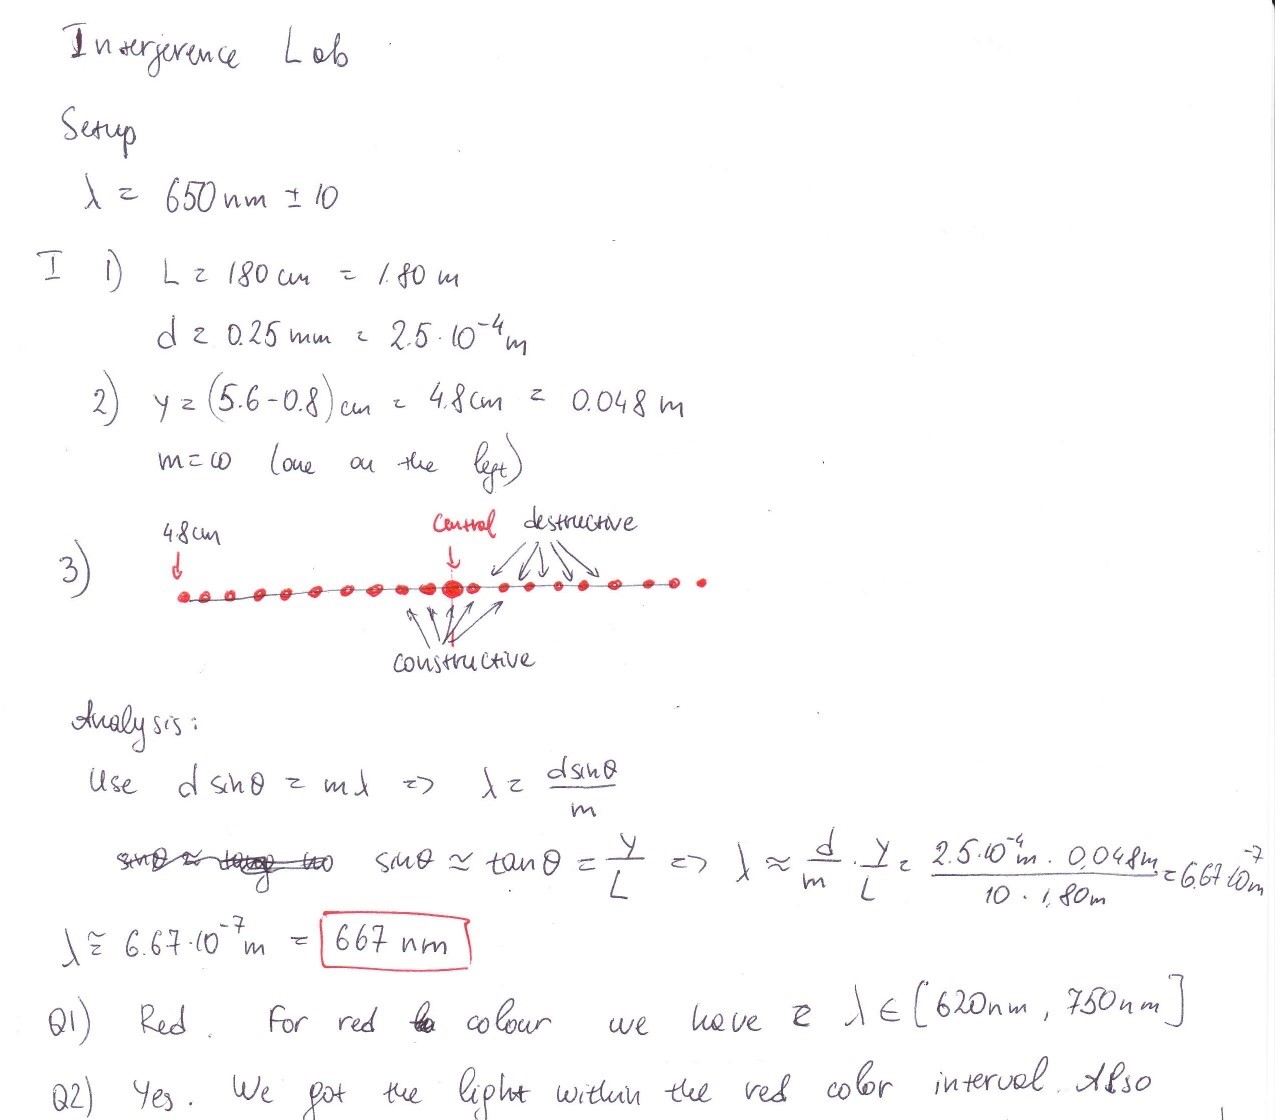 Interference Lab
Setup
λ = 650 nm ± 10
I 1) L = 180 cm = 1.80 m
d = 0.25 mm = 2.5·10⁻⁴ m
2) y = (5.6-0.8) cm = 4.8 cm = 0.048 m
m=10 (one on the left)
4.8 cm Central destructive
3)
constructive
Analysis:
Use d sinθ = mλ => λ = dsinθ/m
sinθ ≈ tanθ = y/L => λ ≈ d/m · y/L = 2.5·10⁻⁴m · 0.048m / 10 · 1.80m = 6.67·10⁻⁷m
λ ≅ 6.67·10⁻⁷ m = 667 nm
Q1) Red. For red colour we have λ ∈ [620nm, 750nm]
Q2) Yes. We got the light within the red color interval. Also